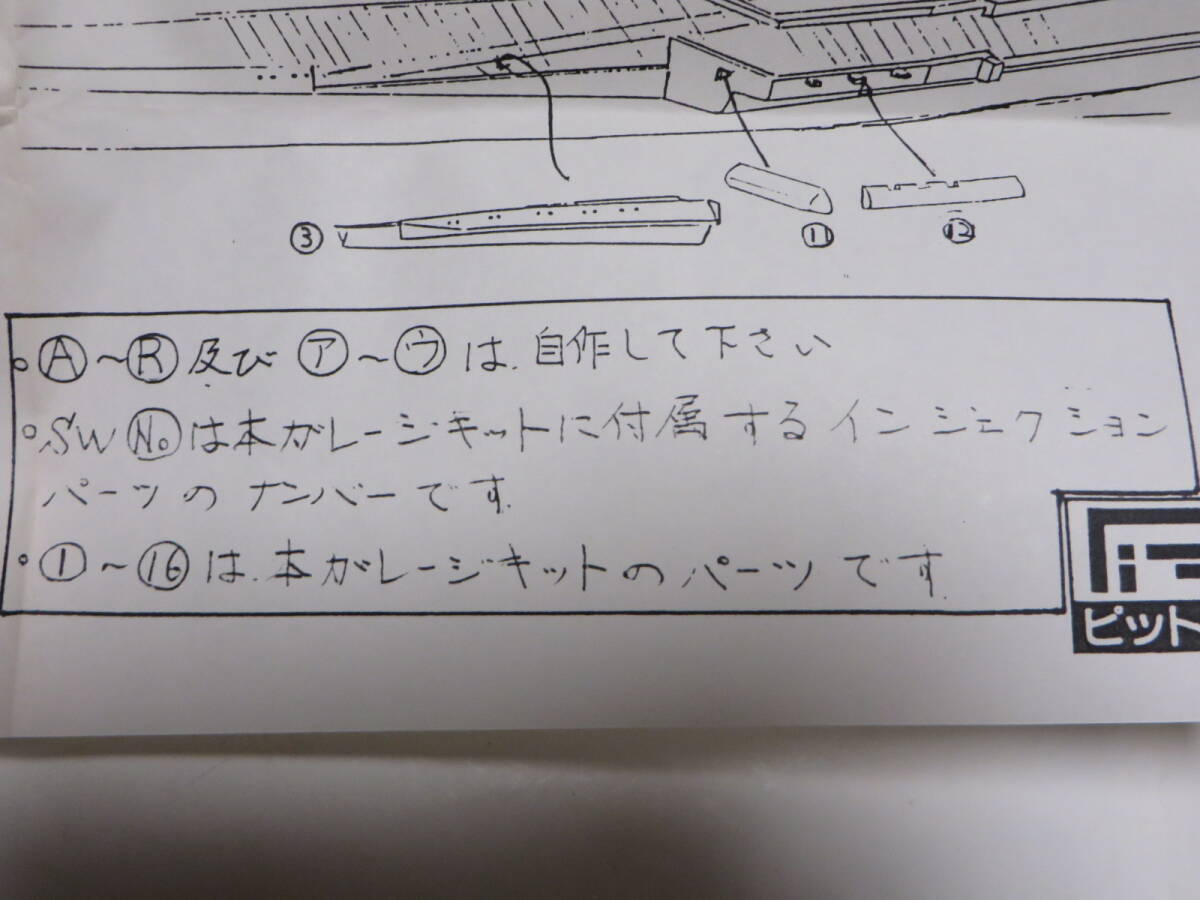 ③
⑪
⑫
。Ⓐ～Ⓡ及び㋐～㋒は.自作して下さい
。SW Noは本ガレージキットに付属するインジェクション
パーツのナンバーです.
。①～⑯は.本ガレージキットのパーツです.
ピット